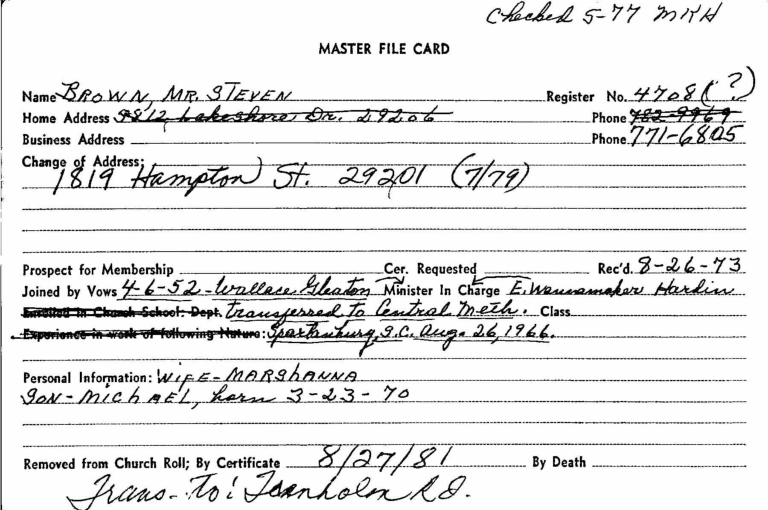 Checked 5-77 MKH
MASTER FILE CARD
Name BROWN, MR. STEVEN Register No. 4708 (?)
Home Address 9812 Lakeshore Dr. 29206 Phone 782-9969
Business Address Phone 771-6805
Change of Address:
1819 Hampton St. 29201 (7/79)
Prospect for Membership Cer. Requested Rec'd. 8-26-73
Joined by Vows 4-6-52 - Wallace Gleaton Minister In Charge E. Wannamaker Hardin
Enrolled in Church School: Dept. transferred to Central Meth. Class
Experience in work of following Nature: Spartanburg, S.C. Aug. 26, 1966.
Personal Information: WIFE - MARSHANNA
SON - MICHAEL, born 3-23-70
Removed from Church Roll; By Certificate 8/27/81 By Death
Trans- to: Rd.